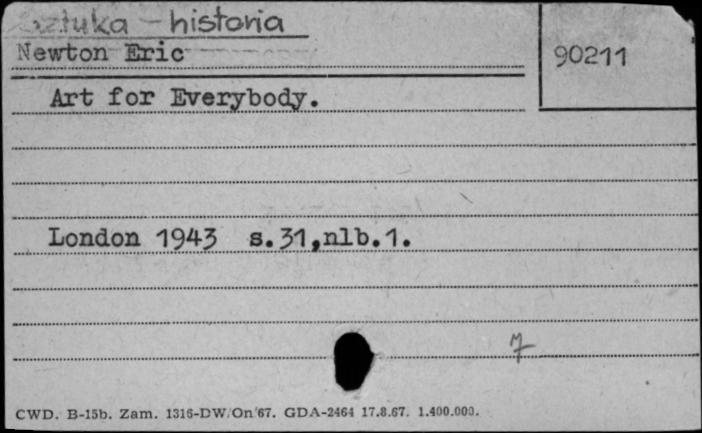 Sztuka - historia
Newton Eric
90211
Art for Everybody.
London 1943 s.31,nlb.1.
7
CWD. B-15b. Zam. 1316-DW/On/67. GDA-2464 17.8.67. 1.400.000.